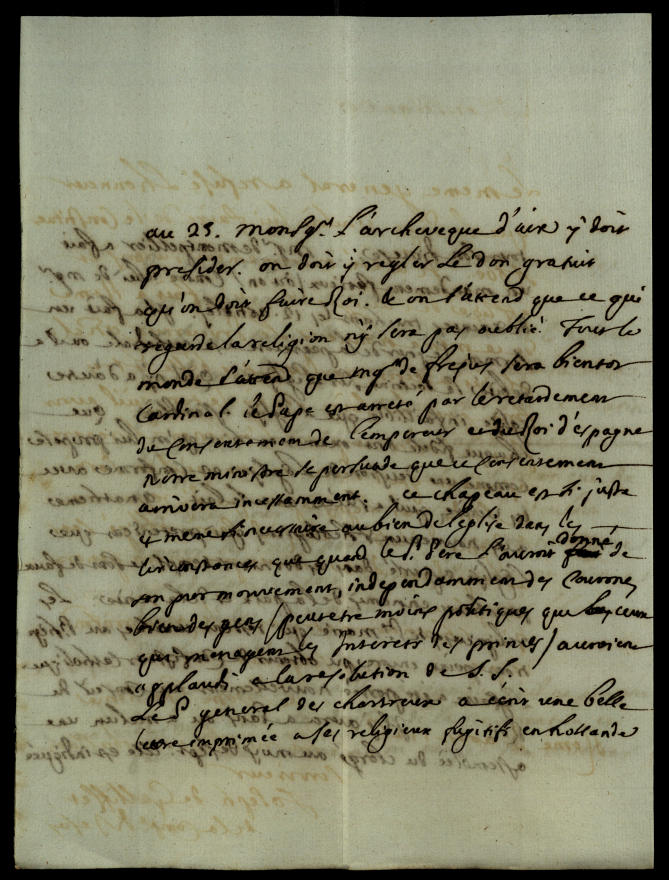 au 25. Monsgr. L'archeveque d'aix y doit
presider. on doit y regler Le Don gratuit
qu'on doit faire au Roi. & on s'attend que ce qui
regarde la religion n'y sera pas oublié. Tout le
monde s'attend que mgr. de frejus sera bientot
Cardinal. le Pape est arreté par le retardement
du Consentement de l'empereur et du Roi d'espagne
notre ministre se persuade que ce Consentement
arrivera incessamment. ce chapeau est si juste
et meme si necessaire au bien de l'eglise dans les
circonstances que quand le St. Pere l'auroit donné de
son pur mouvement, independamment des Couronnes
bien des gens (peutetre moins politiques que ceux
qui menagent les Interets des princes) auroient
applaudi a la resolution de S. S.
Le P general des chartreux a ecrit une belle
lettre imprimée a ses religieux fugitifs en hollande